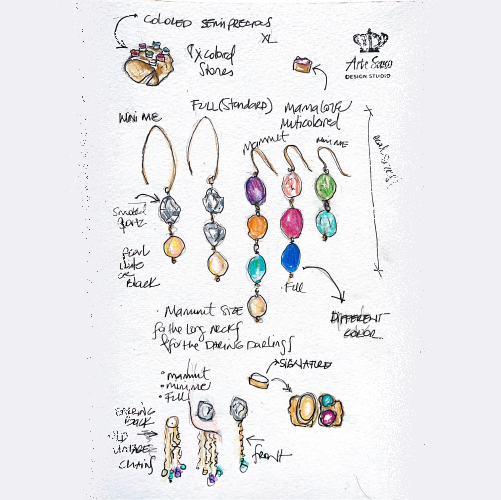 COLORED SEMI PRECIOUS
XL
9x colored
Stones
Arte Sacro
DESIGN STUDIO
FULL (Standard)
MamaLove
Multicolored
MINI ME
Mammut
MINI ME
Smoked
quartz
Pearl
White
or
Black
Full
DIFFERENT
COLOR
• Mammut SIZE
for the Long Necks
& for the DARING DARLINGS
SIGNATURE
• mammut
• mini me
• Full
EARRING
BACK
CHAINS
FRONT